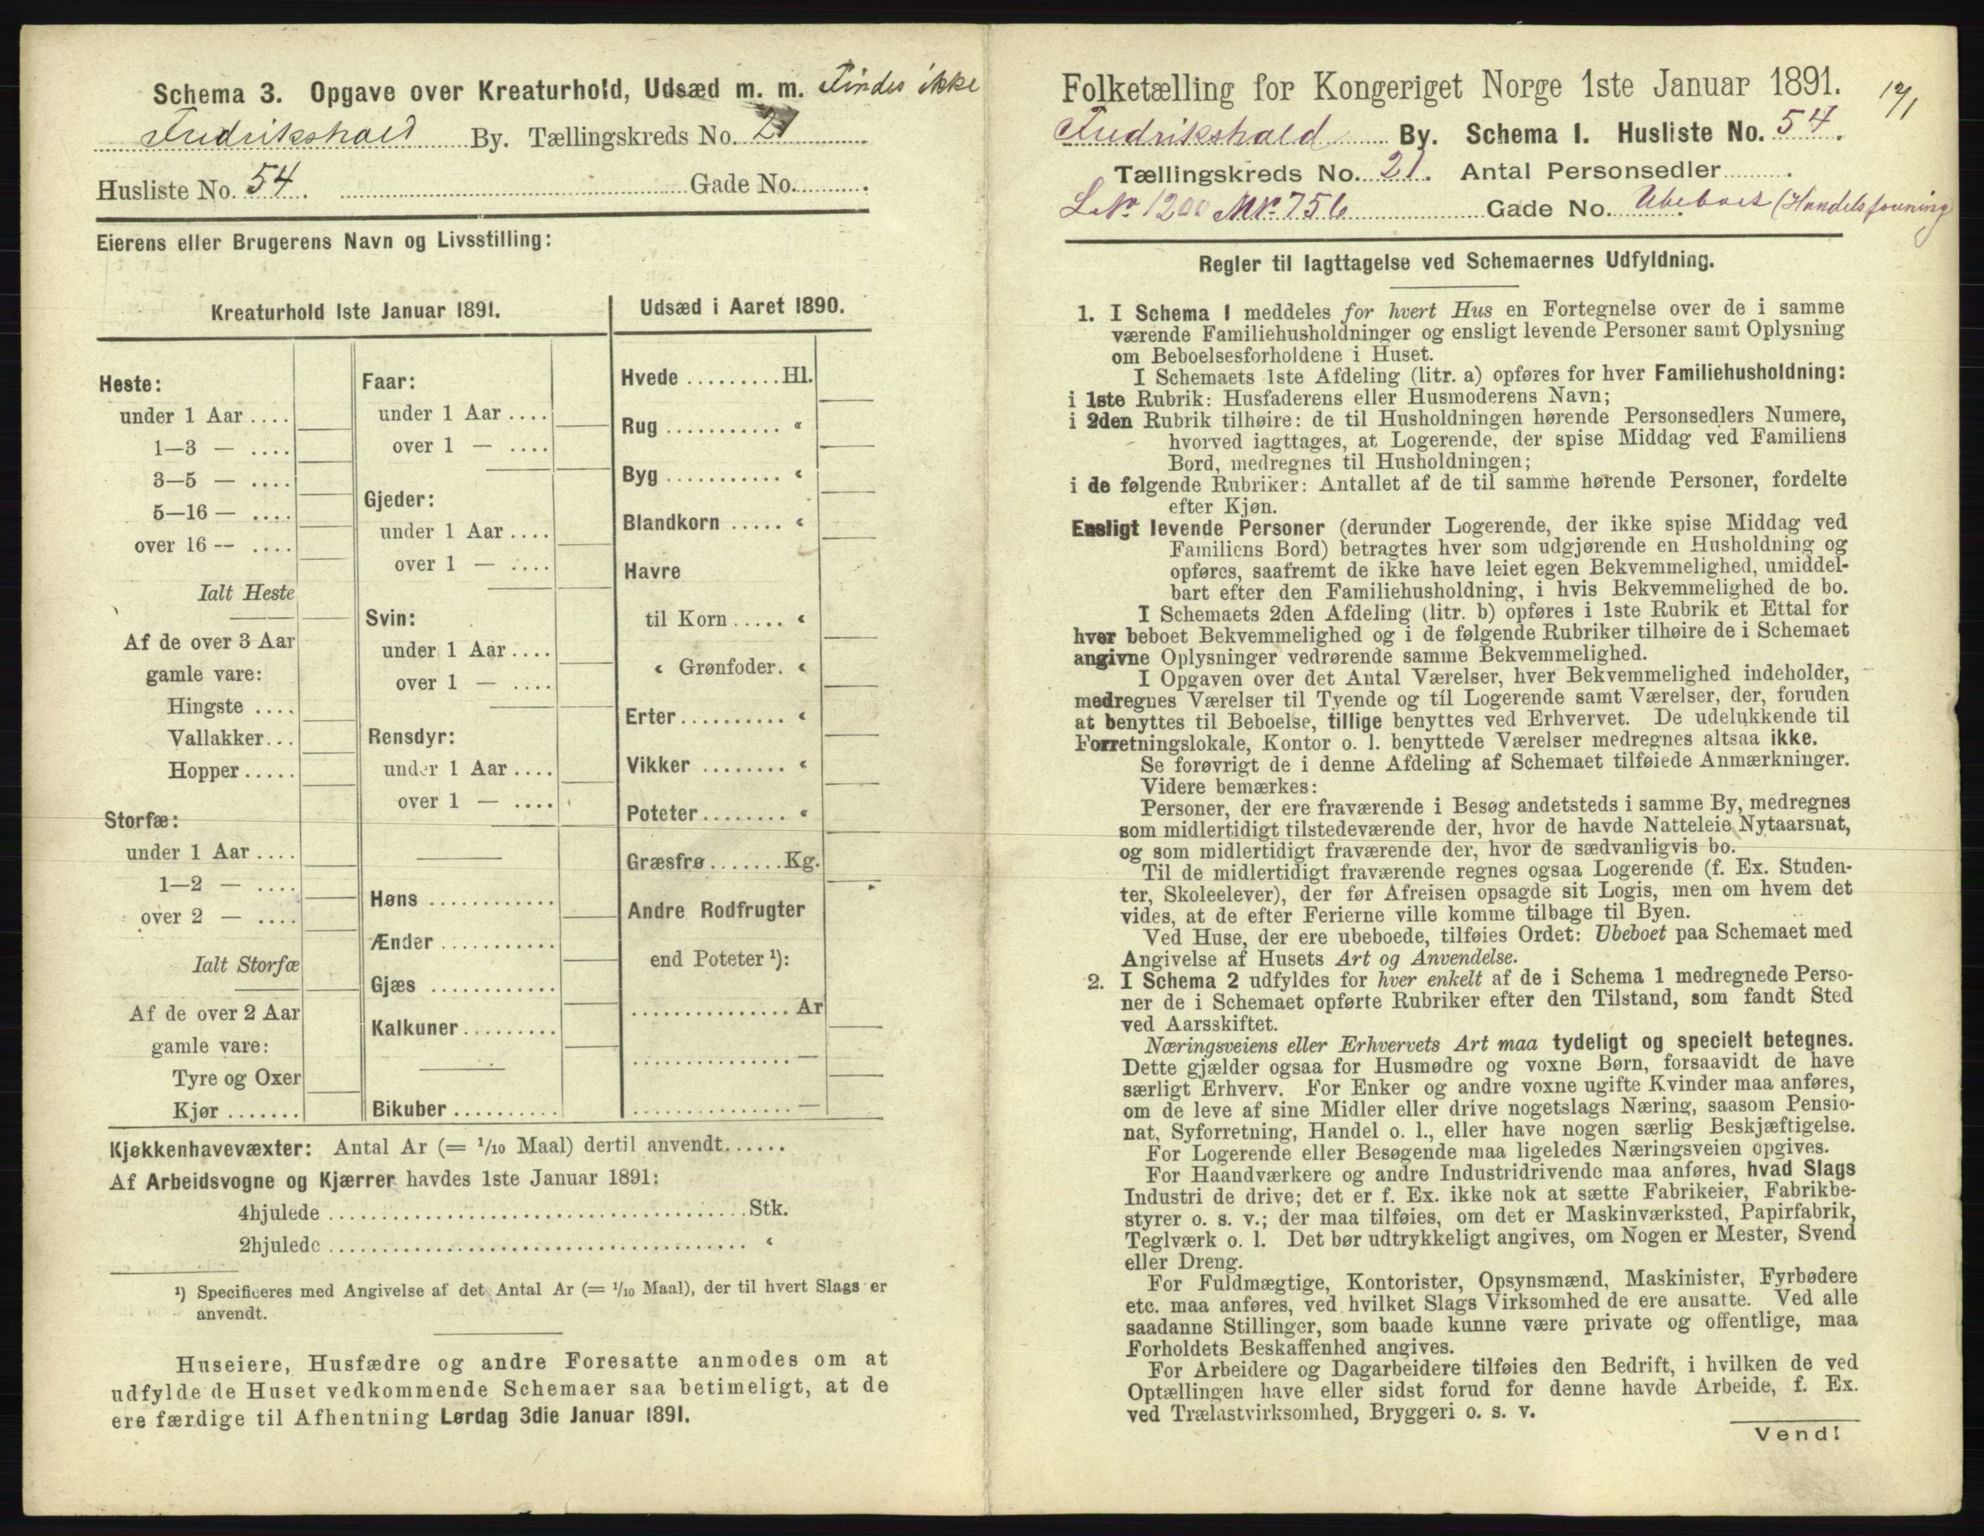 Schema 3. Opgave over Kreaturhold, Udsæd m. m. Findes ikke
Fredrikshald By. Tællingskreds No. 21
Husliste No. 54. Gade No.
Eierens eller Brugerens Navn og Livsstilling:
Kreaturhold 1ste Januar 1891.
Heste:
under 1 Aar ....
1—3 — ....
3—5 — ....
5—16 — ....
over 16 — ....
Ialt Heste
Af de over 3 Aar
gamle vare:
Hingste ....
Vallakker...
Hopper.....
Storfæ:
under 1 Aar ....
1—2 — ....
over 2 — ....
Ialt Storfæ
Af de over 2 Aar
gamle vare:
Tyre og Oxer
Kjør .......
Faar:
under 1 Aar ....
over 1 — ....
Gjeder:
under 1 Aar ....
over 1 — ....
Svin:
under 1 Aar ....
over 1 — ....
Rensdyr:
under 1 Aar ....
over 1 — ....
Høns ............
Ænder ...........
Gjæs ............
Kalkuner.........
Bikuber ..........
Udsæd i Aaret 1890.
Hvede .........Hl.
Rug ........... «
Byg ........... «
Blandkorn ..... «
Havre
til Korn ..... «
« Grønfoder. «
Erter.......... «
Vikker ........ «
Poteter........ «
Græsfrø .......Kg.
Andre Rodfrugter
end Poteter ¹):
............... Ar
............... —
............... —
Kjøkkenhavevæxter: Antal Ar (= 1/10 Maal) dertil anvendt......
Af Arbeidsvogne og Kjærrer havdes 1ste Januar 1891:
4hjulede ........................................Stk.
2hjulede ........................................ «
¹) Specificeres med Angivelse af det Antal Ar (= 1/10 Maal), der til hvert Slags er
anvendt.
Huseiere, Husfædre og andre Foresatte anmodes om at
udfylde de Huset vedkommende Schemaer saa betimeligt, at de
ere færdige til Afhentning Lørdag 3die Januar 1891.
Folketælling for Kongeriget Norge 1ste Januar 1891.
Fredrikshald By. Schema 1. Husliste No. 54.
Tællingskreds No. 21. Antal Personsedler
L No 1200 M No 756 Gade No. Ubeboet (Handelsforening
Regler til Iagttagelse ved Schemaernes Udfyldning.
1. I Schema 1 meddeles for hvert Hus en Fortegnelse over de i samme
værende Familiehusholdninger og ensligt levende Personer samt Oplysning
om Beboelsesforholdene i Huset.
I Schemaets 1ste Afdeling (litr. a) opføres for hver Familiehusholdning:
i 1ste Rubrik: Husfaderens eller Husmoderens Navn;
i 2den Rubrik tilhøire: de til Husholdningen hørende Personsedlers Numere,
hvorved iagttages, at Logerende, der spise Middag ved Familiens
Bord, medregnes til Husholdningen;
i de følgende Rubriker: Antallet af de til samme hørende Personer, fordelte
efter Kjøn.
Ensligt levende Personer (derunder Logerende, der ikke spise Middag ved
Familiens Bord) betragtes hver som udgjørende en Husholdning og
opføres, saafremt de ikke have leiet egen Bekvemmelighed, umiddel-
bart efter den Familiehusholdning, i hvis Bekvemmelighed de bo.
I Schemaets 2den Afdeling (litr. b) opføres i 1ste Rubrik et Ettal for
hver beboet Bekvemmelighed og i de følgende Rubriker tilhøire de i Schemaet
angivne Oplysninger vedrørende samme Bekvemmelighed.
I Opgaven over det Antal Værelser, hver Bekvemmelighed indeholder,
medregnes Værelser til Tyende og til Logerende samt Værelser, der, foruden
at benyttes til Beboelse, tillige benyttes ved Erhvervet. De udelukkende til
Forretningslokale, Kontor o. l. benyttede Værelser medregnes altsaa ikke.
Se forøvrigt de i denne Afdeling af Schemaet tilføiede Anmærkninger.
Videre bemærkes:
Personer, der ere fraværende i Besøg andetsteds i samme By, medregnes
som midlertidigt tilstedeværende der, hvor de havde Natteleie Nytaarsnat,
og som midlertidigt fraværende der, hvor de sædvanligvis bo.
Til de midlertidigt fraværende regnes ogsaa Logerende (f. Ex. Studen-
ter, Skoleelever), der før Afreisen opsagde sit Logis, men om hvem det
vides, at de efter Ferierne ville komme tilbage til Byen.
Ved Huse, der ere ubeboede, tilføies Ordet: Ubeboet paa Schemaet med
Angivelse af Husets Art og Anvendelse.
2. I Schema 2 udfyldes for hver enkelt af de i Schema 1 medregnede Perso-
ner de i Schemaet opførte Rubriker efter den Tilstand, som fandt Sted
ved Aarsskiftet.
Næringsveiens eller Erhvervets Art maa tydeligt og specielt betegnes.
Dette gjælder ogsaa for Husmødre og voxne Børn, forsaavidt de have
særligt Erhverv. For Enker og andre voxne ugifte Kvinder maa anføres,
om de leve af sine Midler eller drive nogetslags Næring, saasom Pensio-
nat, Syforretning, Handel o. l., eller have nogen særlig Beskjæftigelse.
For Logerende eller Besøgende maa ligeledes Næringsveien opgives.
For Haandværkere og andre Industridrivende maa anføres, hvad Slags
Industri de drive; det er f. Ex. ikke nok at sætte Fabrikeier, Fabrikbe-
styrer o. s. v.; der maa tilføies, om det er Maskinværksted, Papirfabrik,
Teglværk o. l. Det bør udtrykkeligt angives, om Nogen er Mester, Svend
eller Dreng.
For Fuldmægtige, Kontorister, Opsynsmænd, Maskinister, Fyrbødere
etc. maa anføres, ved hvilket Slags Virksomhed de ere ansatte. Ved alle
saadanne Stillinger, som baade kunne være private og offentlige, maa
Forholdets Beskaffenhed angives.
For Arbeidere og Dagarbeidere tilføies den Bedrift, i hvilken de ved
Optællingen have eller sidst forud for denne havde Arbeide, f. Ex.
ved Trælastvirksomhed, Bryggeri o. s. v.
Vend!